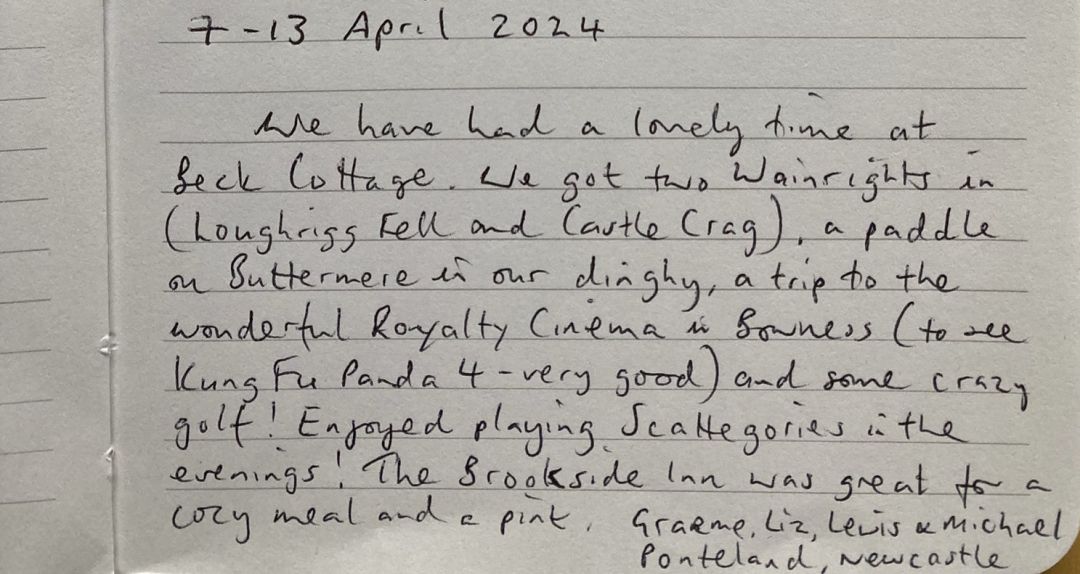 7-13 April 2024
We have had a lovely time at
Beck Cottage. We got two Wainrights in
(Loughrigg Fell and Castle Crag), a paddle
on Buttermere in our dinghy, a trip to the
wonderful Royalty Cinema in Bowness (to see
Kung Fu Panda 4 - very good) and some crazy
golf! Enjoyed playing Scattegories in the
evenings! The Brookside Inn was great for a
cozy meal and a pint. Graeme, Liz, Lewis & Michael
Ponteland, Newcastle